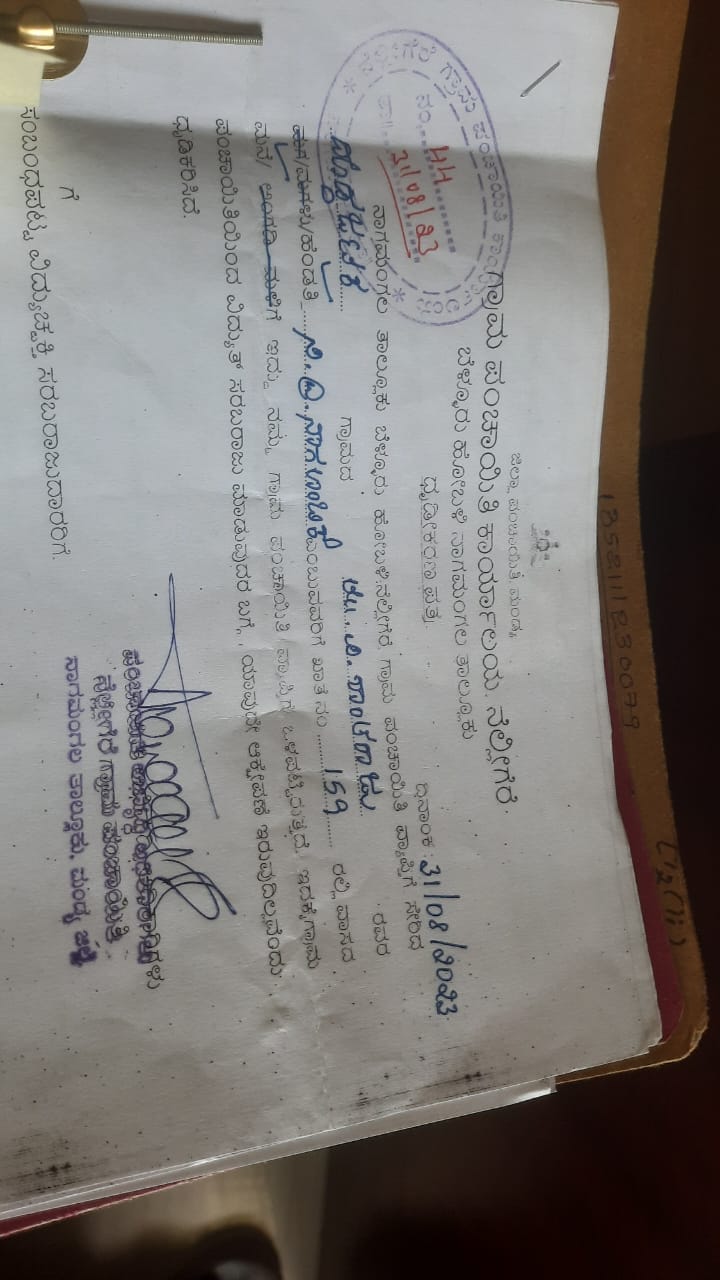 ಜಿಲ್ಲಾ ಪಂಚಾಯಿತಿ ಮಂಡ್ಯ
ಗ್ರಾಮ ಪಂಚಾಯಿತಿ ಕಾರ್ಯಾಲಯ, ನೆಲ್ಲೀಗೆರೆ
ಬೆಳ್ಳೂರು ಹೋಬಳಿ ನಾಗಮಂಗಲ ತಾಲ್ಲೂಕು
ಗ್ರಾಮ ಪಂಚಾಯಿತಿ
ನಂ. 44
31/08/23
ದೃಢೀಕರಣ ಪತ್ರ
ದಿನಾಂಕ : 31/08/2023
ನಾಗಮಂಗಲ ತಾಲ್ಲೂಕು ಬೆಳ್ಳೂರು ಹೋಬಳಿ.ನೆಲ್ಲೀಗೆರೆ ಗ್ರಾಮ ಪಂಚಾಯಿತಿ ವ್ಯಾಪ್ತಿಗೆ ಸೇರಿದ
ಗ್ರಾಮದ ರವರ
ಮಗ/ಮಗಳು/ಹೆಂಡತಿ ಎಂಬುವವರಿಗೆ ಖಾತೆ ನಂ 159 ರಲ್ಲಿ ವಾಸದ
ಮನೆ/ ಅಂಗಡಿ ಮಳಿಗೆ ಇದ್ದು ನಮ್ಮ ಗ್ರಾಮ ಪಂಚಾಯಿತಿ ವ್ಯಾಪ್ತಿಗೆ ಒಳಪಟ್ಟಿರುತ್ತದೆ. ಇದಕ್ಕೆ ಗ್ರಾಮ
ಪಂಚಾಯಿತಿಯಿಂದ ವಿದ್ಯುತ್ ಸರಬರಾಜು ಮಾಡುವುದರ ಬಗ್ಗೆ, ಯಾವುದೇ ಆಕ್ಷೇಪಣೆ ಇರುವುದಿಲ್ಲವೆಂದು
ಧೃಡಿಕರಿಸಿದೆ.
ನೆಲ್ಲೀಗೆರೆ ಗ್ರಾಮ ಪಂಚಾಯಿತಿ
ನಾಗಮಂಗಲ ತಾಲ್ಲೂಕು, ಮಂಡ್ಯ ಜಿಲ್ಲೆ
ಗೆ
ಸಂಬಂಧಪಟ್ಟ ವಿದ್ಯುಚ್ಛಕ್ತಿ ಸರಬರಾಜುದಾರರಿಗೆ